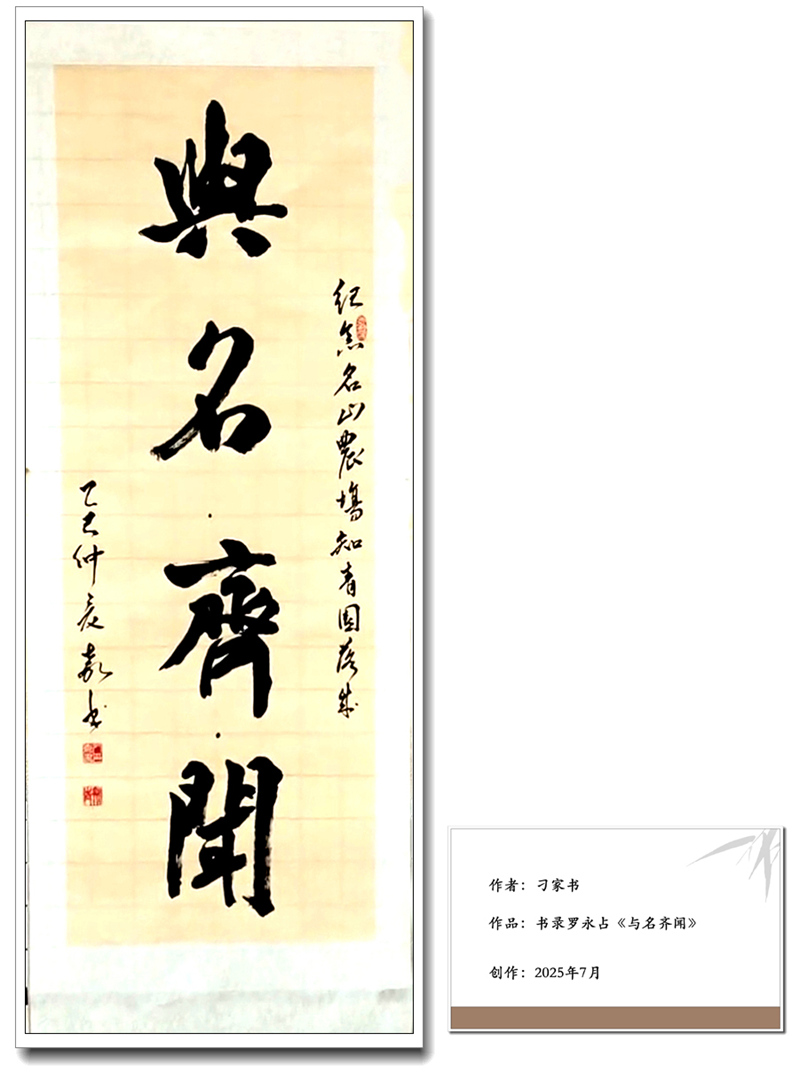 與名齊聞
紀念名山農場知青園落成
乙巳仲夏嘉书
作者：刁家书
作品：书录罗永占《与名齐闻》
创作：2025年7月